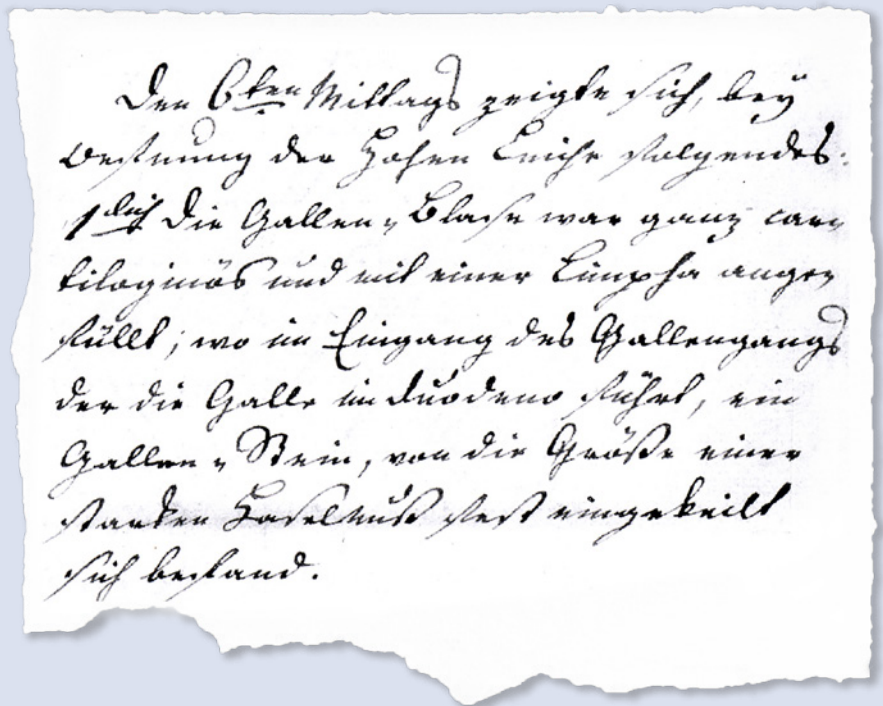 Den 6ten Mittags zeigte sich, bey
Oefnung der Hohen Leiche folgendes:
1lich Die Gallen-Blase war ganz car-
tilaginös und mit einer Limpha ange-
füllt; wo im Eingang des Gallengangs
der die Galle im duodeno führt, ein
Gallen-Stein, von die Größe einer
starken Haselnuß fest eingekeilt
sich befand.